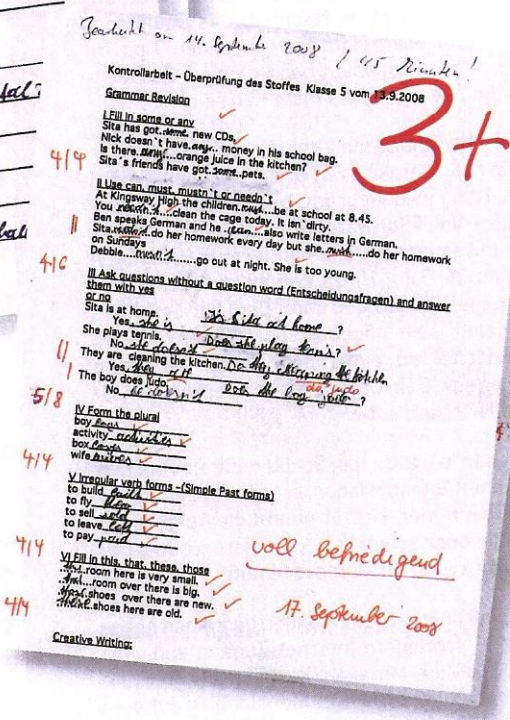 Bearbeitet am 14. September 2008 / 45 Minuten!
Kontrollarbeit – Überprüfung des Stoffes Klasse 5 vom 13.9.2008
3+
Grammar Revision
I Fill in some or any
Sita has got.some. new CDs.
Nick doesn`t have.any... money in his school bag.
Is there.any....orange juice in the kitchen?
Sita´s friends have got.some..pets.
4/4
II Use can, must, mustn`t or needn`t
At Kingsway High the children.must...be at school at 8.45.
You needn't....clean the cage today. It isn`dirty.
Ben speaks German and he .can....also write letters in German.
Sita.mustn't.do her homework every day but she.must.....do her homework
on Sundays
Debble....mustn't.....go out at night. She is too young.
4/6
III Ask questions without a question word (Entscheidungsfragen) and answer
them with yes
or no
Sita is at home.
Yes, she is Is Sita at home ?
She plays tennis.
No she doesn't Does she play tennis ?
They are cleaning the kitchen. Do they cleaning the kitchen
Yes, they are
do judo
The boy does judo.
No he doesn't Does the boy judo ?
5/8
IV Form the plural
boy boys
activity activities
box
wife wives
4/4
V Irregular verb forms –(Simple Past forms)
to build built
to fly flew
to sell sold
to leave left
to pay paid
4/4
voll befriedigend
VI Fill in this, that, these, those
this.room here is very small.
that...room over there is big.
those.shoes over there are new.
these.shoes here are old.
4/4
17. September 2008
Creative Writing: